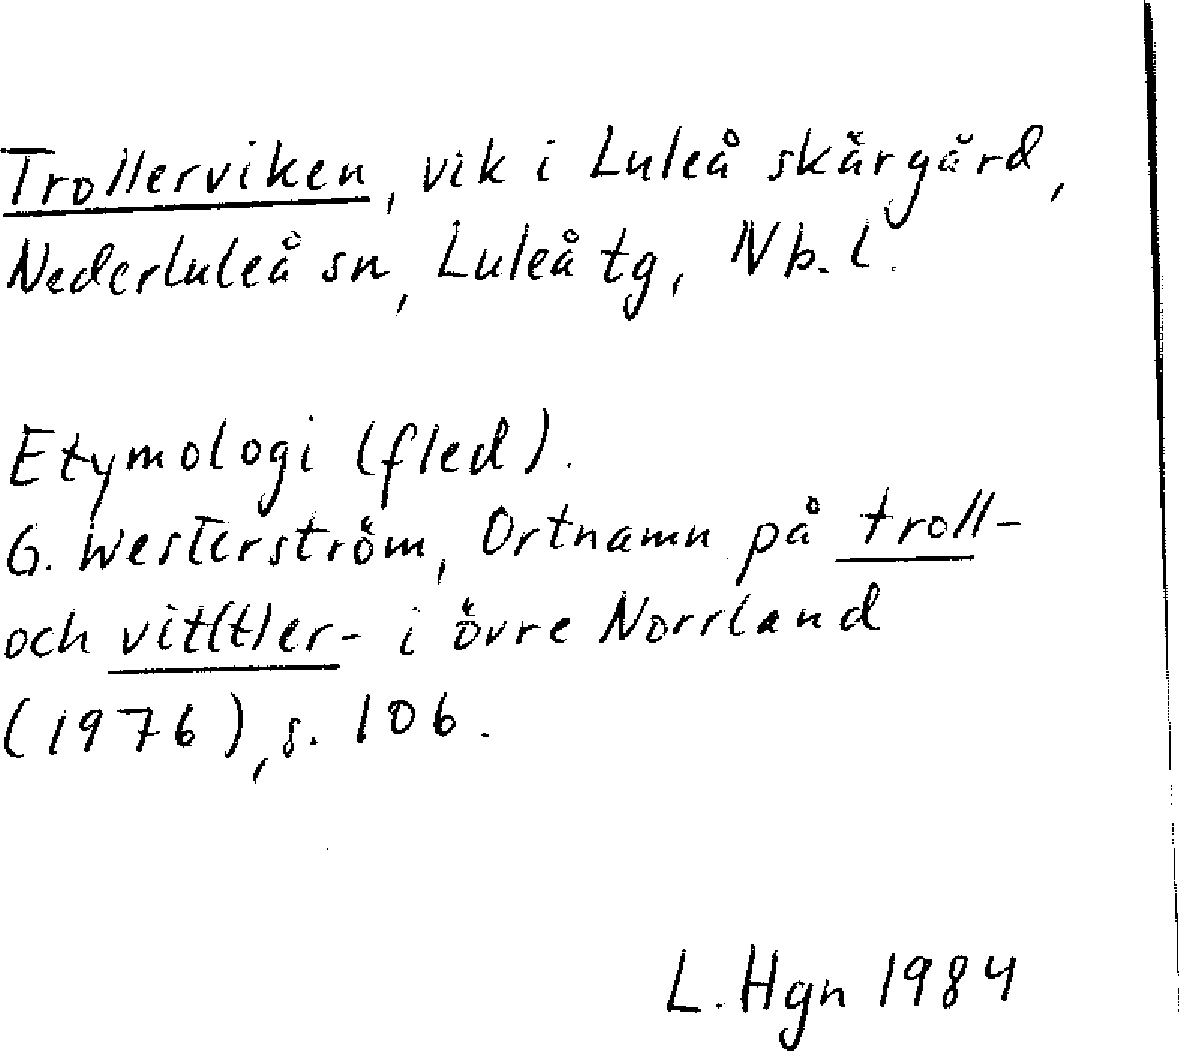 Trollerviken, vik i Luleå skärgård,
Nederluleå sn, Luleå tg, Nb. l.
Etymologi (fled).
G. Westerström, Ortnamn på troll-
och vit(t)er- i övre Norrland
(1976), s. 106.
L. Hgn 1984